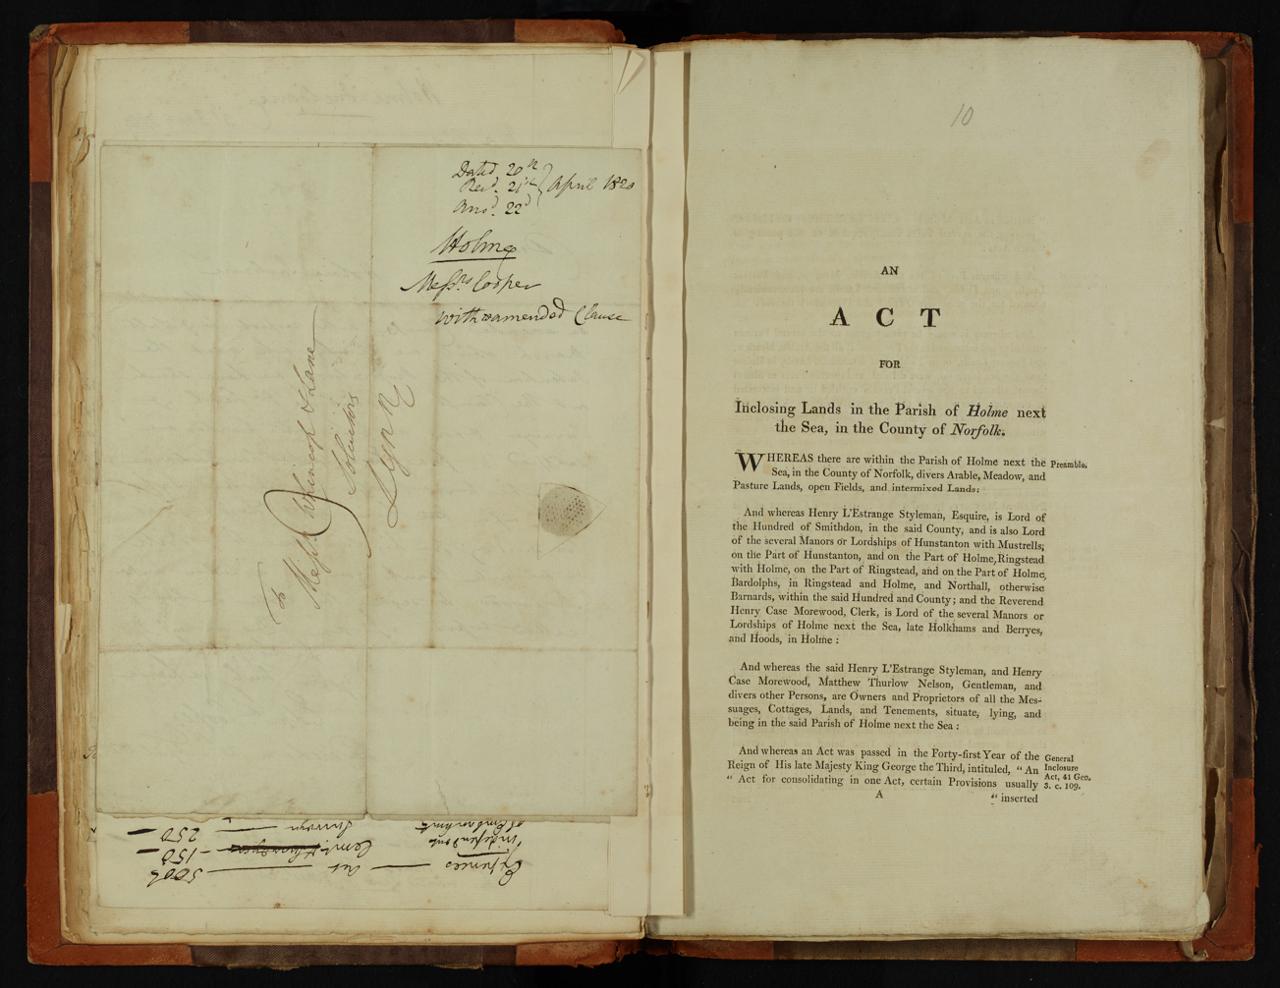 Dated 20th
Recd. 21st
Ansd. 22d
April 1820
Holme
Messrs Cooper
with amended Clause
To
Messrs Whincop & Lane
Solicitors
Lynn
Expences
Act
500
150
independent
of Embankmt
Survey
250
10
AN
ACT
FOR
Inclosing Lands in the Parish of Holme next
the Sea, in the County of Norfolk.
WHEREAS there are within the Parish of Holme next the
Preamble.
Sea, in the County of Norfolk, divers Arable, Meadow, and
Pasture Lands, open Fields, and intermixed Lands:
And whereas Henry L'Estrange Styleman, Esquire, is Lord of
the Hundred of Smithdon, in the said County, and is also Lord
of the several Manors or Lordships of Hunstanton with Mustrells,
on the Part of Hunstanton, and on the Part of Holme, Ringstead
with Holme, on the Part of Ringstead, and on the Part of Holme,
Bardolphs, in Ringstead and Holme, and Northall, otherwise
Barnards, within the said Hundred and County; and the Reverend
Henry Case Morewood, Clerk, is Lord of the several Manors or
Lordships of Holme next the Sea, late Holkhams and Berryes,
and Hoods, in Holme:
And whereas the said Henry L'Estrange Styleman, and Henry
Case Morewood, Matthew Thurlow Nelson, Gentleman, and
divers other Persons, are Owners and Proprietors of all the Mes-
suages, Cottages, Lands, and Tenements, situate, lying, and
being in the said Parish of Holme next the Sea:
And whereas an Act was passed in the Forty-first Year of the
Reign of His late Majesty King George the Third, intituled, "An
" Act for consolidating in one Act, certain Provisions usually
General
Inclosure
Act, 41 Geo.
3. c. 109.
A
" inserted